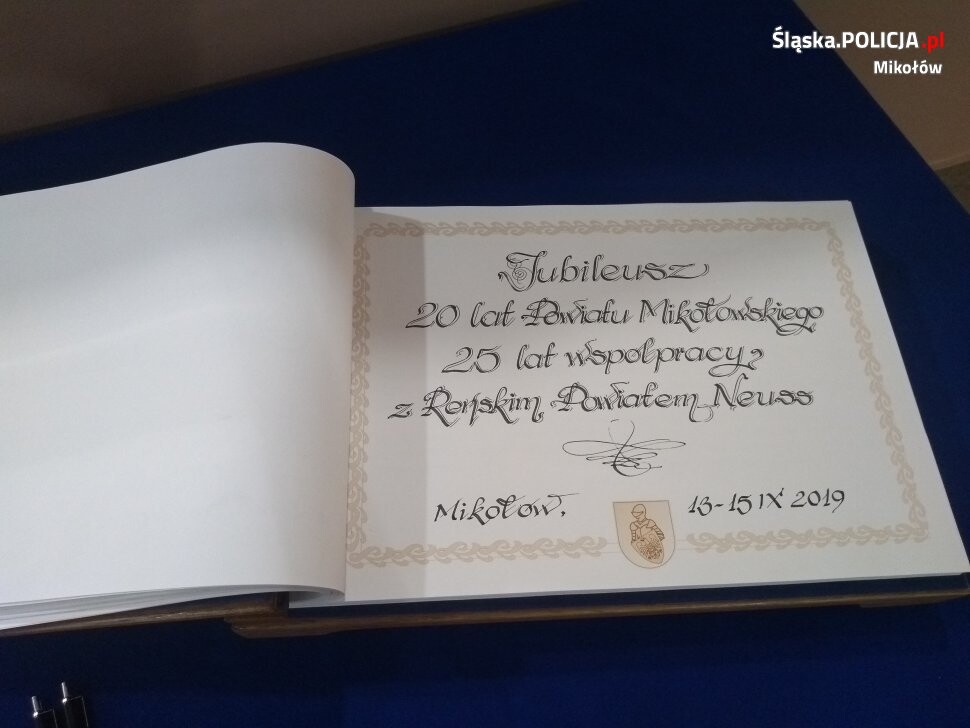 Śląska.POLICJA.pl
Mikołów
Jubileusz
20 lat Powiatu Mikołowskiego
25 lat współpracy
z Reńskim Powiatem Neuss
Mikołów, 13-15 IX 2019